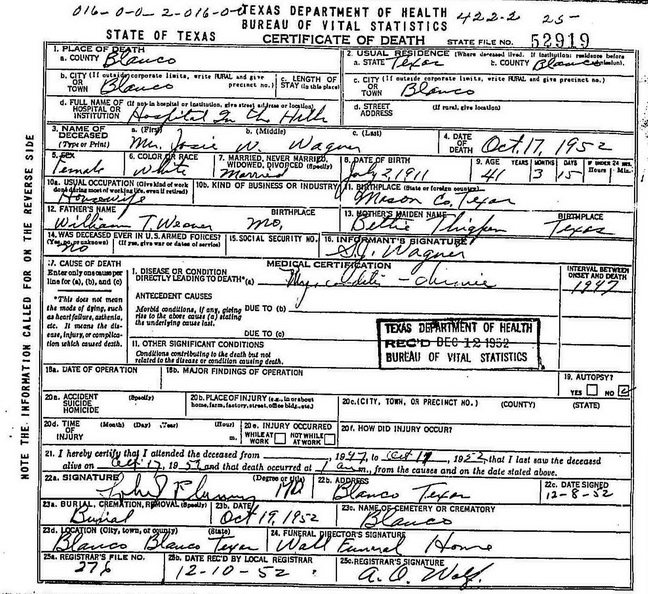 016-0-0-2-016-0-0 TEXAS DEPARTMENT OF HEALTH 422-2 25-
BUREAU OF VITAL STATISTICS
STATE OF TEXAS CERTIFICATE OF DEATH STATE FILE NO. 52919
1. PLACE OF DEATH 2. USUAL RESIDENCE (Where deceased lived. If institution: residence before admission).
a. COUNTY Blanco a. STATE Texas b. COUNTY Blanco
b. CITY (If outside corporate limits, write RURAL and give precinct no.) c. LENGTH OF STAY (in this place) c. CITY (If outside corporate limits, write RURAL and give precinct no.)
OR TOWN Blanco OR TOWN Blanco
d. FULL NAME OF HOSPITAL OR INSTITUTION (If not in hospital or institution, give street address or location) d. STREET ADDRESS (If rural, give location)
Hospital In the Hills
3. NAME OF DECEASED (Type or Print) a. (First) b. (Middle) c. (Last) 4. DATE OF DEATH
Mrs. Josie W. Wagner Oct. 17, 1952
5. SEX 6. COLOR OR RACE 7. MARRIED, NEVER MARRIED, WIDOWED, DIVORCED (Specify) 8. DATE OF BIRTH 9. AGE YEARS MONTHS DAYS IF UNDER 24 HRS. Hours Min.
Female White Married July 2, 1911 41 3 15
10a. USUAL OCCUPATION (Give kind of work done during most of working life, even if retired) 10b. KIND OF BUSINESS OR INDUSTRY 11. BIRTHPLACE (State or foreign country)
Housewife Mason Co, Texas
12. FATHER'S NAME BIRTHPLACE 13. MOTHER'S MAIDEN NAME BIRTHPLACE
William T. Weaver Mo. Bettie Thigpen Texas
14. WAS DECEASED EVER IN U.S. ARMED FORCES? (Yes, no, or unknown) (If yes, give war or dates of service) 15. SOCIAL SECURITY NO. 16. INFORMANT'S SIGNATURE
No Wagner
17. CAUSE OF DEATH MEDICAL CERTIFICATION INTERVAL BETWEEN ONSET AND DEATH
Enter only one cause per line for (a), (b), and (c)
I. DISEASE OR CONDITION DIRECTLY LEADING TO DEATH*(a) 1947
*This does not mean the mode of dying, such as heart failure, asthenia, etc. It means the disease, injury, or complication which caused death.
ANTECEDENT CAUSES
Morbid conditions, if any, giving rise to the above cause (a) stating the underlying cause last.
DUE TO (b)
DUE TO (c)
TEXAS DEPARTMENT OF HEALTH
REC'D DEC 12 1952
BUREAU OF VITAL STATISTICS
II. OTHER SIGNIFICANT CONDITIONS
Conditions contributing to the death but not related to the disease or condition causing death.
18a. DATE OF OPERATION 18b. MAJOR FINDINGS OF OPERATION 19. AUTOPSY?
YES NO
20a. ACCIDENT SUICIDE HOMICIDE (Specify) 20b. PLACE OF INJURY (e.g., in or about home, farm, factory, street, office bldg., etc.) 20c. (CITY, TOWN, OR PRECINCT NO.) (COUNTY) (STATE)
20d. TIME OF INJURY (Month) (Day) (Year) (Hour) m. 20e. INJURY OCCURRED WHILE AT WORK NOT WHILE AT WORK 20f. HOW DID INJURY OCCUR?
21. I hereby certify that I attended the deceased from 1947, to Oct 17, 1952 that I last saw the deceased
alive on Oct 17, 1952 and that death occurred at 1 am., from the causes and on the date stated above.
22a. SIGNATURE (Degree or title) 22b. ADDRESS 22c. DATE SIGNED
MD Blanco Texas 12-8-52
23a. BURIAL, CREMATION, REMOVAL (Specify) 23b. DATE 23c. NAME OF CEMETERY OR CREMATORY
Burial Oct 19, 1952 Blanco
23d. LOCATION (City, town, or county) (State) 24. FUNERAL DIRECTOR'S SIGNATURE
Blanco Blanco Texas Wall Funeral Home
25a. REGISTRAR'S FILE NO. 25b. DATE REC'D BY LOCAL REGISTRAR 25c. REGISTRAR'S SIGNATURE
276 12-10-52
NOTE THE INFORMATION CALLED FOR ON THE REVERSE SIDE